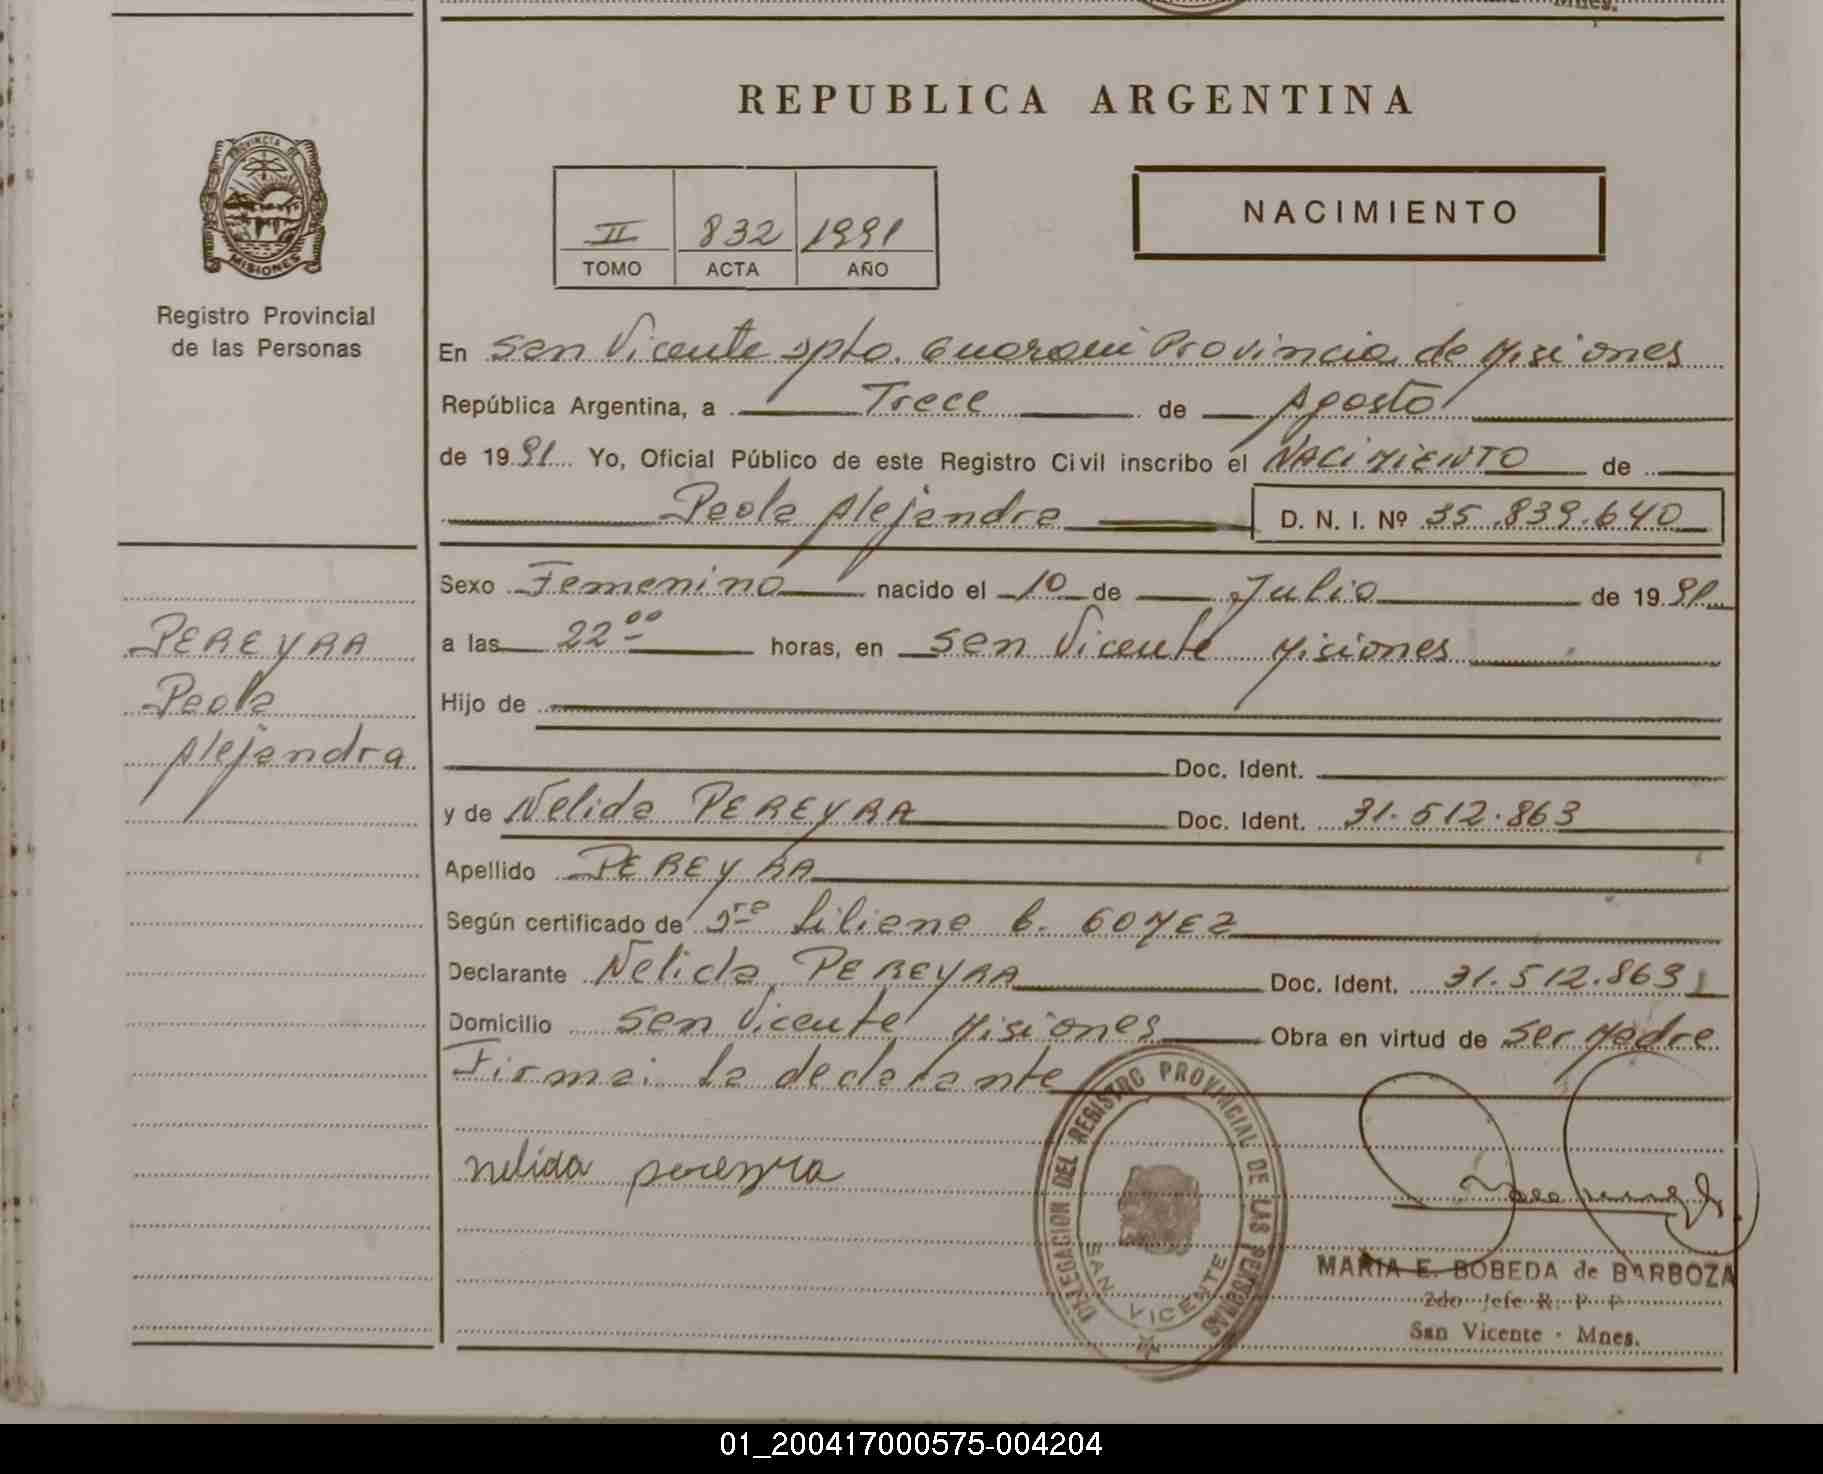 Mnes.
REPUBLICA ARGENTINA
PROVINCIA DE
MISIONES
Registro Provincial
de las Personas
II 832 1991
TOMO ACTA AÑO
NACIMIENTO
En San Vicente Dpto. Guarani Provincia de Misiones
República Argentina, a Trece de Agosto
de 1991 Yo, Oficial Público de este Registro Civil inscribo el NACIMIENTO de
Paola Alejandra D. N. I. Nº 35.839.640
Sexo Femenino nacido el 10 de Julio de 1991
a las 22 00 horas, en San Vicente Misiones
Hijo de
Doc. Ident.
y de Nelida PEREYRA Doc. Ident. 31.512.863
Apellido PEREYRA
Según certificado de Dra Liliana B. GOMEZ
Declarante Nelida PEREYRA Doc. Ident. 31.512.863
Domicilio San Vicente Misiones Obra en virtud de ser Madre
Firma: la declarante
nelida pereyra
PEREYRA
Paola
Alejandra
DELEGACION DEL REGISTRO PROVINCIAL DE LAS PERSONAS
SAN VICENTE
MARIA E. BOBEDA de BARBOZA
2do Jefe R. P. P.
San Vicente - Mnes.
01_200417000575-004204